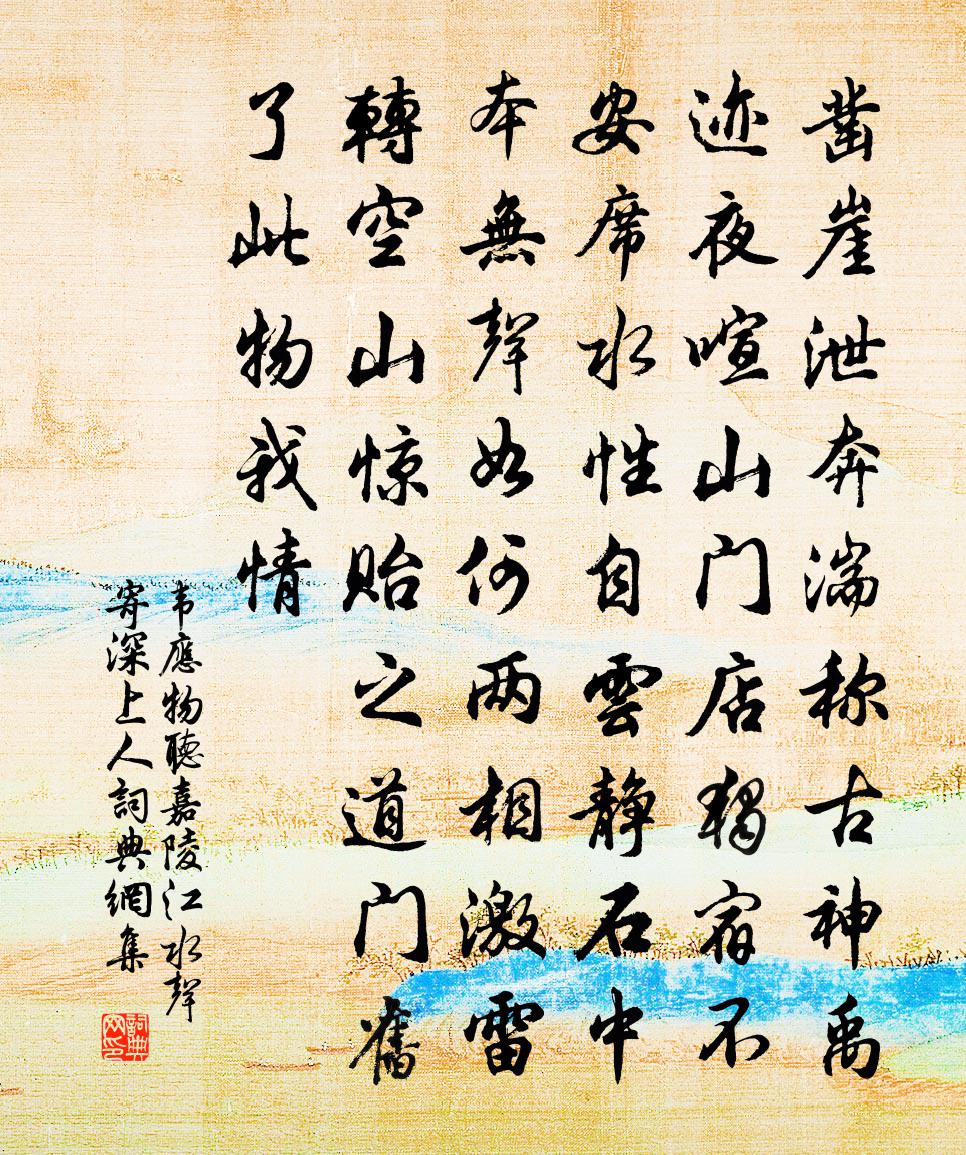 凿崖泄奔湍称古神禹
迹夜喧山门店獨宿不
安席水性自雲静石中
本無聲如何两相激雷
轉空山惊贻之道门舊
了此物我情
韦應物聽嘉陵江水聲
寄深上人詞典網集
詞典网印